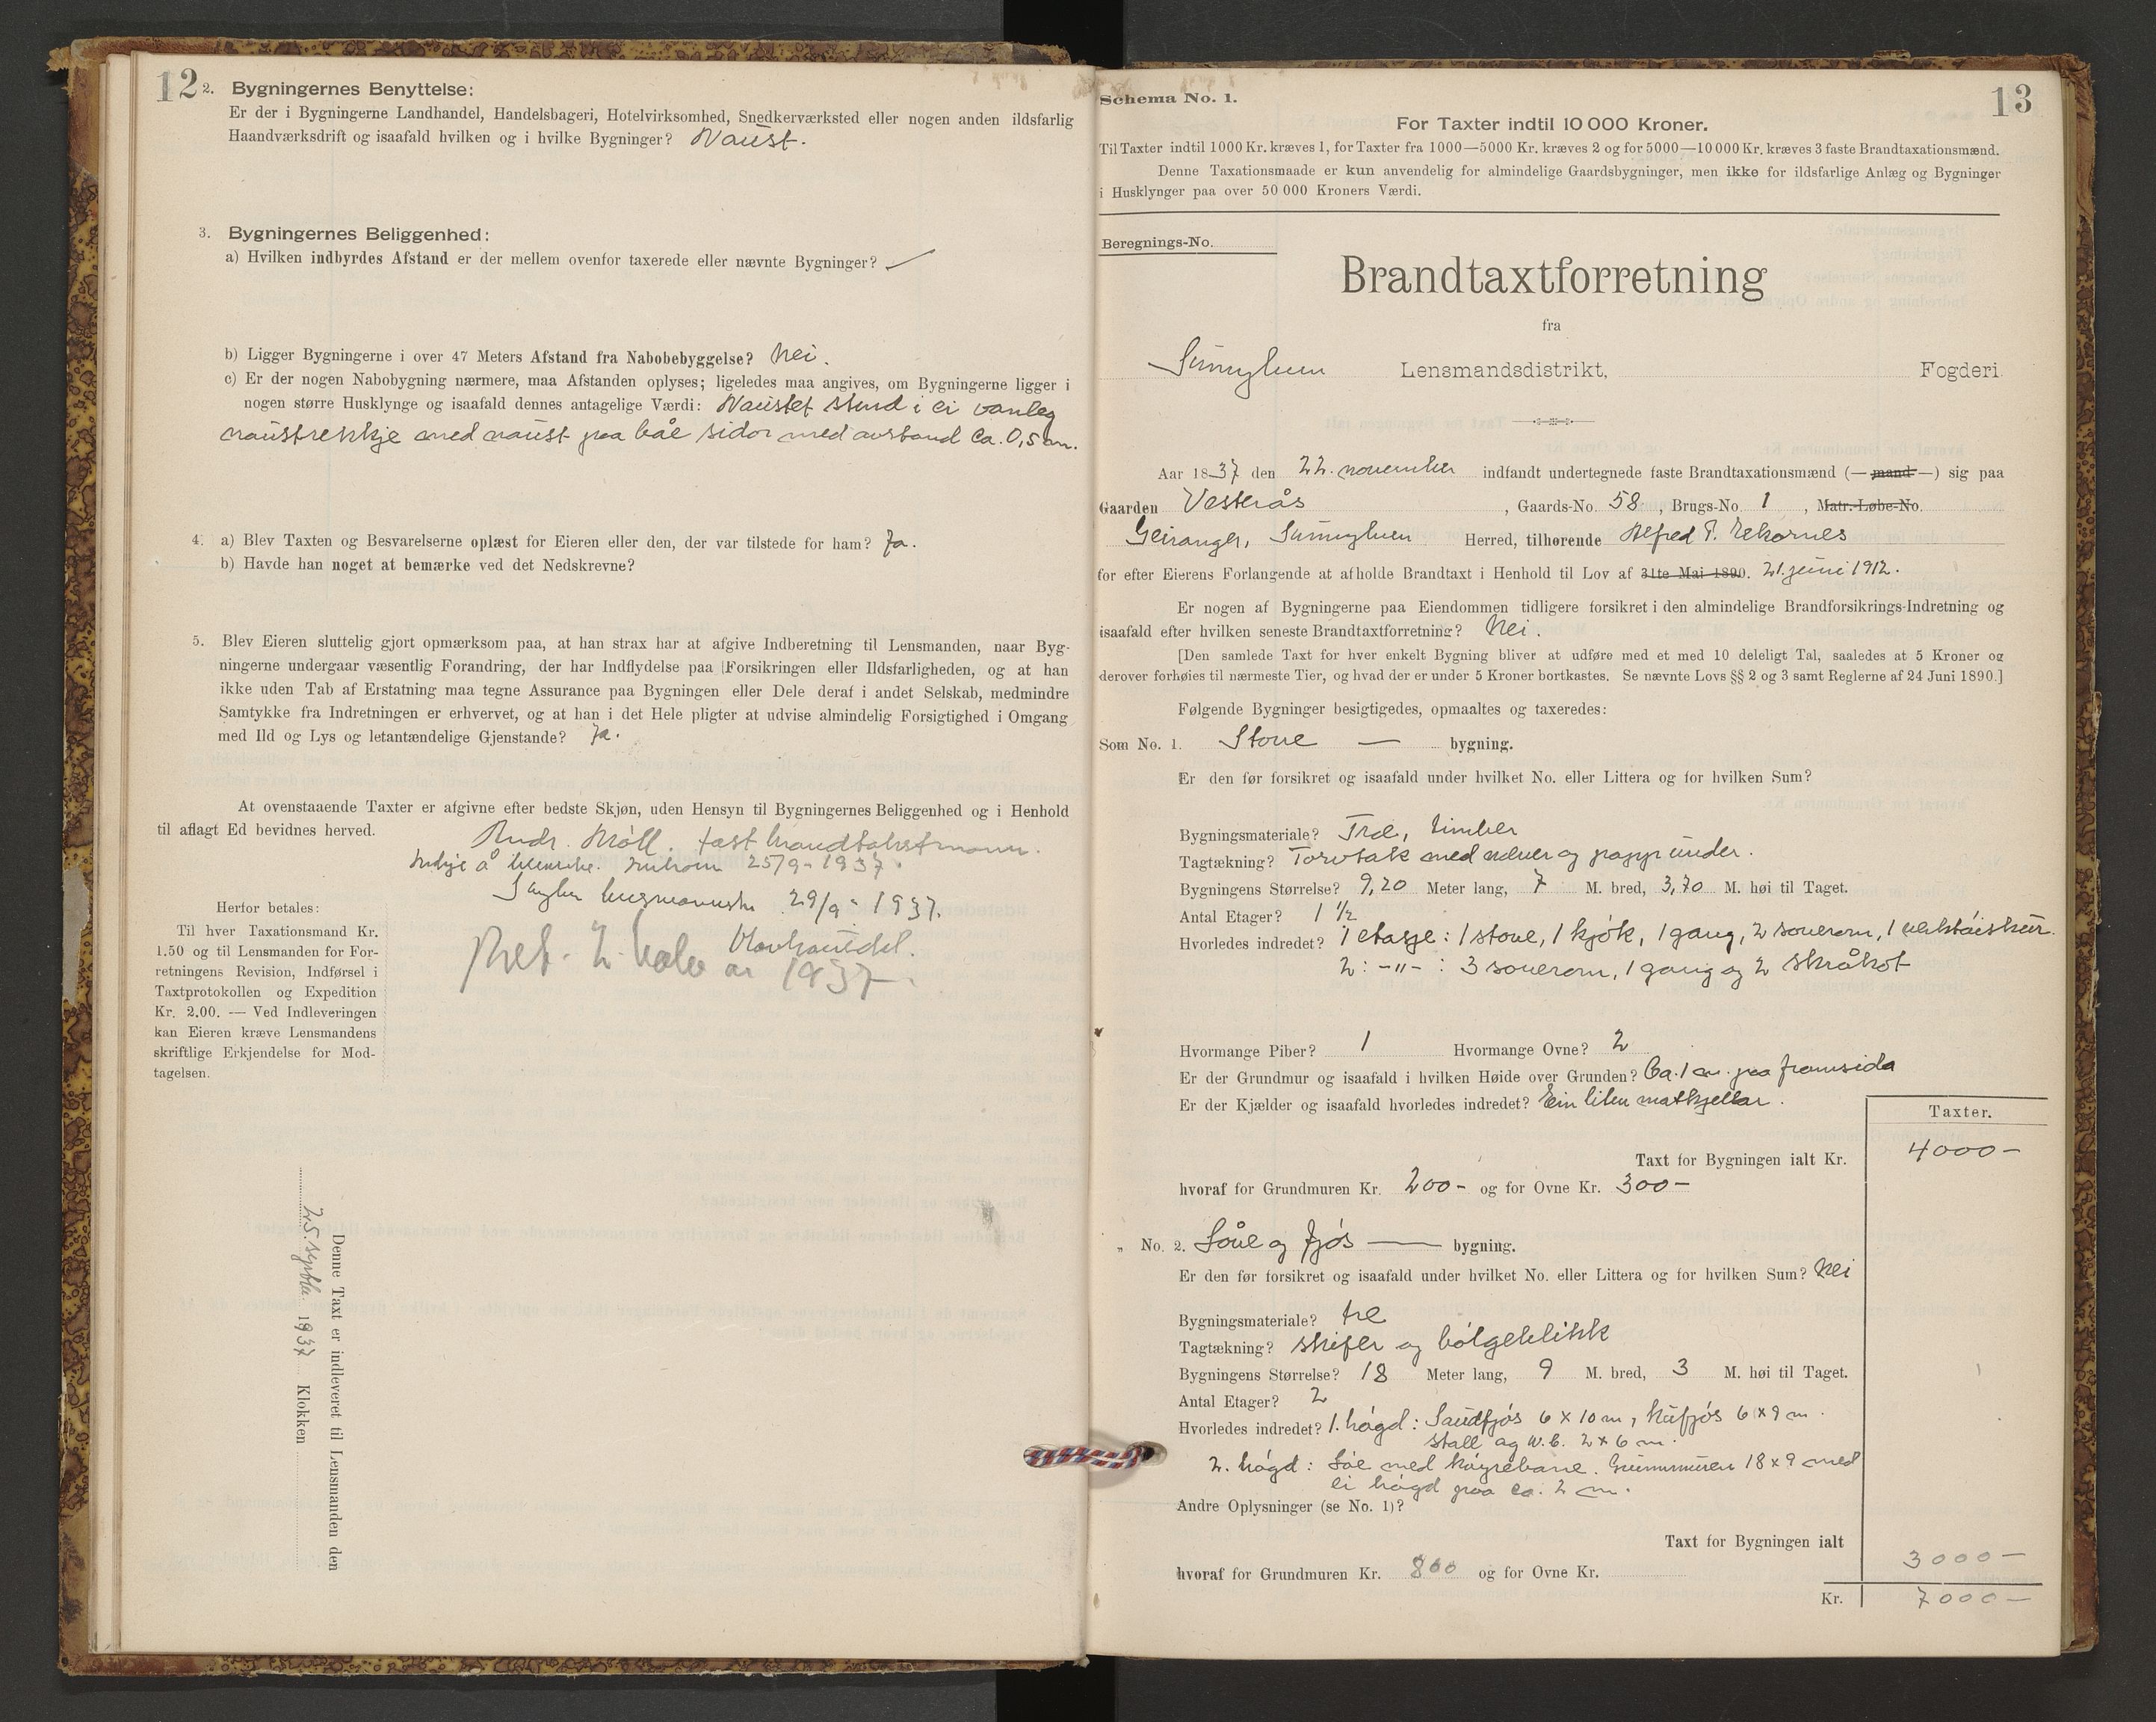 12
2. Bygningernes Benyttelse:
Er der i Bygningerne Landhandel, Handelsbageri, Hotelvirksomhed, Snedkerværksted eller nogen anden ildsfarlig
Haandværksdrift og isaafald hvilken og i hvilke Bygninger? Naust.
3. Bygningernes Beliggenhed:
a) Hvilken indbyrdes Afstand er der mellem ovenfor taxerede eller nævnte Bygninger?
b) Ligger Bygningerne i over 47 Meters Afstand fra Nabobebyggelse? Nei.
c) Er der nogen Nabobygning nærmere, maa Afstanden oplyses; ligeledes maa angives, om Bygningerne ligger i
nogen større Husklynge og isaafald dennes antagelige Værdi: Naustet stend i ei vanleg
naustrekkje med naust paa båe sidor med avstand ca. 0,5 m.
4. a) Blev Taxten og Besvarelserne oplæst for Eieren eller den, der var tilstede for ham? Ja.
b) Havde han noget at bemærke ved det Nedskrevne?
5. Blev Eieren sluttelig gjort opmærksom paa, at han strax har at afgive Indberetning til Lensmanden, naar Byg-
ningerne undergaar væsentlig Forandring, der har Indflydelse paa Forsikringen eller Ildsfarligheden, og at han
ikke uden Tab af Erstatning maa tegne Assurance paa Bygningen eller Dele deraf i andet Selskab, medmindre
Samtykke fra Indretningen er erhvervet, og at han i det Hele pligter at udvise almindelig Forsigtighed i Omgang
med Ild og Lys og letantændelige Gjenstande? Ja.
At ovenstaaende Taxter er afgivne efter bedste Skjøn, uden Hensyn til Bygningernes Beliggenhed og i Henhold
til aflagt Ed bevidnes herved.
Andr. Möll. fast brandtakstmann.
25/9-1937.
29/9-1937.
1937.
Herfor betales:
Til hver Taxationsmand Kr.
1.50 og til Lensmanden for For-
retningens Revision, Indførsel i
Taxtprotokollen og Expedition
Kr. 2.00. — Ved Indleveringen
kan Eieren kræve Lensmandens
skriftlige Erkjendelse for Mod-
tagelsen.
Denne Taxt er indleveret til Lensmanden den
25. septbr. 1937 Klokken
13
Schema No. 1.
For Taxter indtil 10 000 Kroner.
Til Taxter indtil 1000 Kr. kræves 1, for Taxter fra 1000—5000 Kr. kræves 2 og for 5000—10 000 Kr. kræves 3 faste Brandtaxationsmænd.
Denne Taxationsmaade er kun anvendelig for almindelige Gaardsbygninger, men ikke for ildsfarlige Anlæg og Bygninger
i Husklynger paa over 50 000 Kroners Værdi.
Beregnings-No.
Brandtaxtforretning
fra
Sunnylven Lensmandsdistrikt, Fogderi
Aar 1837 den 22. november indfandt undertegnede faste Brandtaxationsmænd (— mand —) sig paa
Gaarden Vesterås, Gaards-No. 58, Brugs-No. 1, Matr.-Løbe-No.
Geiranger, Sunnylven Herred, tilhørende Alfred P. Ekornes
for efter Eierens Forlangende at afholde Brandtaxt i Henhold til Lov af 31te Mai 1890. 21. juni 1912.
Er nogen af Bygningerne paa Eiendommen tidligere forsikret i den almindelige Brandforsikrings-Indretning og
isaafald efter hvilken seneste Brandtaxtforretning? Nei.
[Den samlede Taxt for hver enkelt Bygning bliver at udføre med et med 10 deleligt Tal, saaledes at 5 Kroner og
derover forhøies til nærmeste Tier, og hvad der er under 5 Kroner bortkastes. Se nævnte Lovs §§ 2 og 3 samt Reglerne af 24 Juni 1890.]
Følgende Bygninger besigtigedes, opmaaltes og taxeredes:
Som No. 1. Stove — bygning.
Er den før forsikret og isaafald under hvilket No. eller Littera og for hvilken Sum?
Bygningsmateriale? Tre, timber
Tagtækning? Torvtak med never og papp under.
Bygningens Størrelse? 9,20 Meter lang, 7 M. bred, 3,70 M. høi til Taget.
Antal Etager? 1 ½
Hvorledes indredet? 1 etasje: 1 stove, 1 kjøk, 1 gang, 2 soverom, 1
2: -"- : 3 soverom, 1 gang og 2 skråkot
Hvormange Piber? 1 Hvormange Ovne? 2
Er der Grundmur og isaafald i hvilken Høide over Grunden? Ca. 1 m. paa framsida
Er der Kjælder og isaafald hvorledes indredet? Ein liten matkjellar.
Taxter.
Taxt for Bygningen ialt Kr. 4000-
hvoraf for Grundmuren Kr. 200- og for Ovne Kr. 300-
„ No. 2. Löue og fjös — bygning.
Er den før forsikret og isaafald under hvilket No. eller Littera og for hvilken Sum? Nei
Bygningsmateriale? tre
Tagtækning? skifer og bölgeblikk
Bygningens Størrelse? 18 Meter lang, 9 M. bred, 3 M. høi til Taget.
Antal Etager? 2
Hvorledes indredet? 1. högd: Saudfjös 6 x 10 m, Kufjös 6 x 9 m.
stall og w.c. 2 x 6 m.
2. högd: Löe med köyrebane. Grunnmuren 18 x 9 med
ei högd paa ca. 2 m.
Andre Oplysninger (se No. 1)?
Taxt for Bygningen ialt 3000-
hvoraf for Grundmuren Kr. 800 og for Ovne Kr.
Kr. 7000-